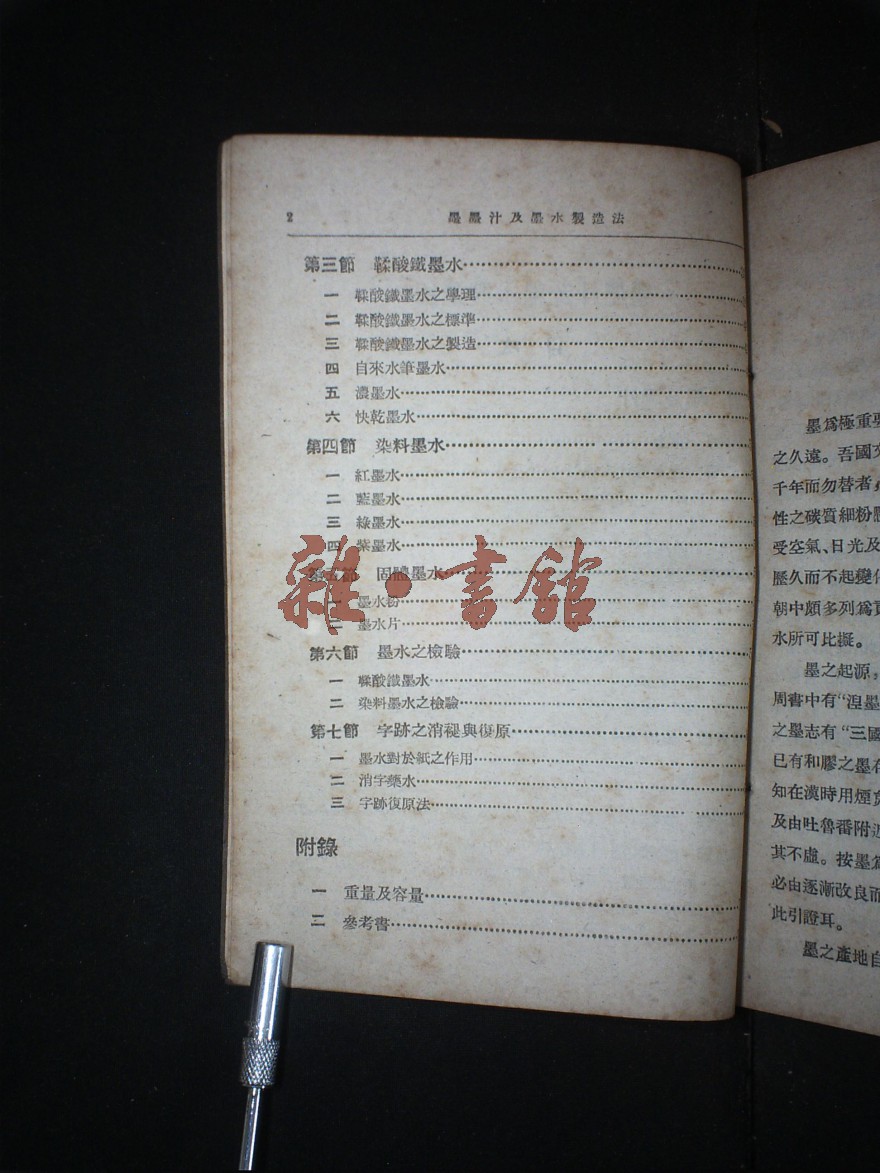 2 墨墨汁及墨水製造法
第三節 鞣酸鐵墨水
一 鞣酸鐵墨水之學理
二 鞣酸鐵墨水之標準
三 鞣酸鐵墨水之製造
四 自來水筆墨水
五 濃墨水
六 快乾墨水
第四節 染料墨水
一 紅墨水
二 藍墨水
三 綠墨水
四 紫墨水
第五節 固體墨水
一 墨水粉
二 墨水片
第六節 墨水之檢驗
一 鞣酸鐵墨水
二 染料墨水之檢驗
第七節 字跡之消褪與復原
一 墨水對於紙之作用
二 消字藥水
三 字跡復原法
附錄
一 重量及容量
二 參考書
雜·書館
墨爲極重要
之久遠。吾國文
千年而勿替者,
性之碳質細粉
受空氣、日光及
歷久而不起變
朝中頗多列爲
水所可比擬。
墨之起源,
周書中有“涅墨
之墨志有“三國
已有和膠之墨在
知在漢時用煙
及由吐魯番附近
其不虛。按墨爲
必由逐漸改良而
此引證耳。
墨之產地自